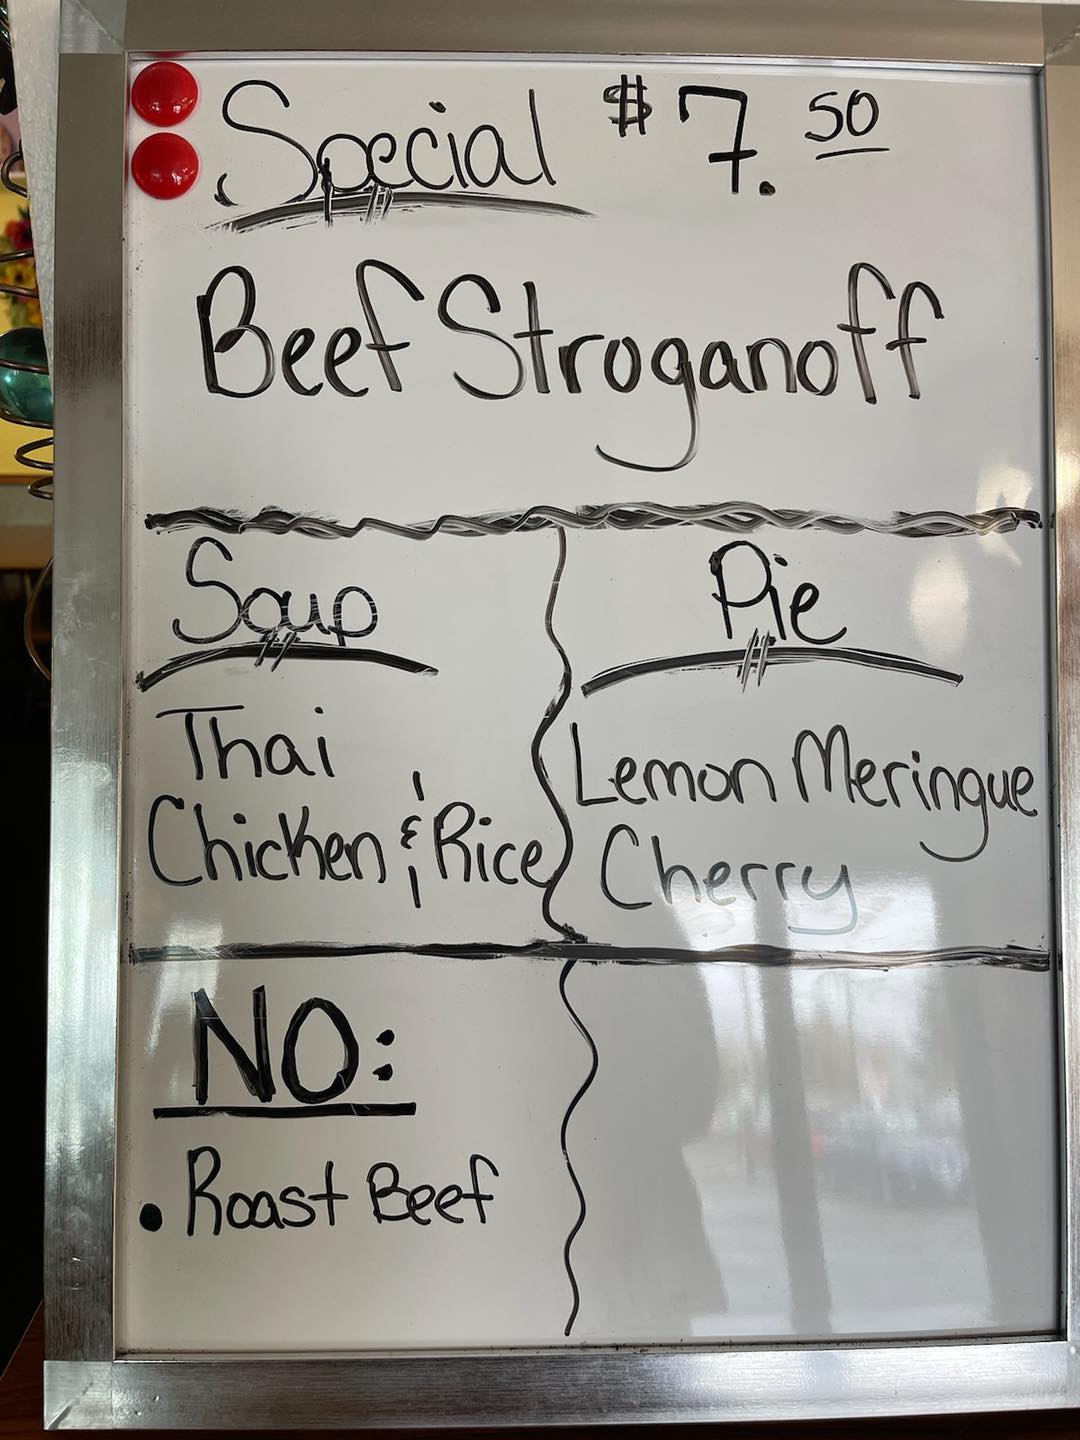 Special $7.50
Beef Stroganoff
Soup
Thai
Chicken & Rice
Pie
Lemon Meringue
Cherry
NO:
• Roast Beef